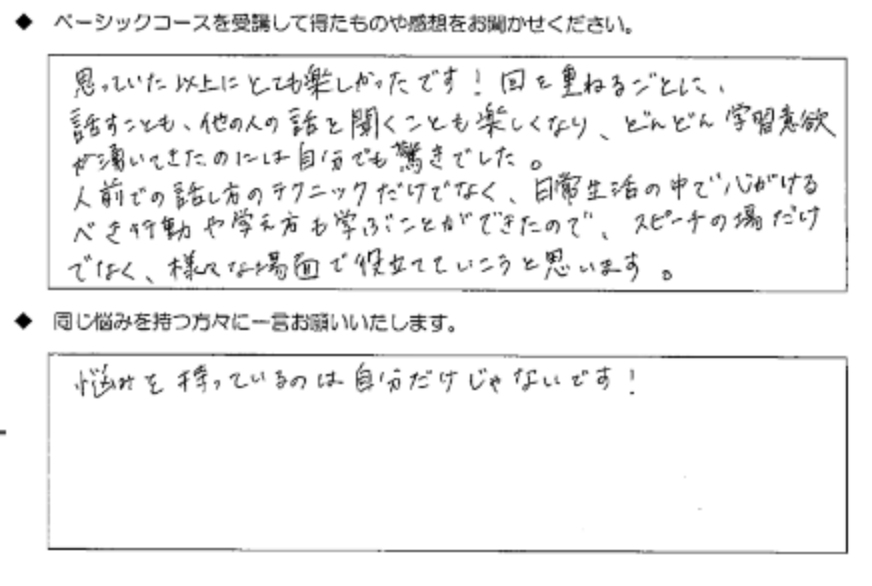 ◆ ベーシックコースを受講して得たものや感想をお聞かせください。
思っていた以上にとても楽しかったです！回を重ねるごとに、
話すことも、他の人の話を聞くことも楽しくなり、どんどん学習意欲
が湧いてきたのには自分でも驚きでした。
人前での話し方のテクニックだけでなく、日常生活の中で心がける
べき行動や考え方も学ぶことができたので、スピーチの場だけ
でなく、様々な場面で役立てていこうと思います。
◆ 同じ悩みを持つ方々に一言お願いいたします。
悩みを持っているのは自分だけじゃないです！